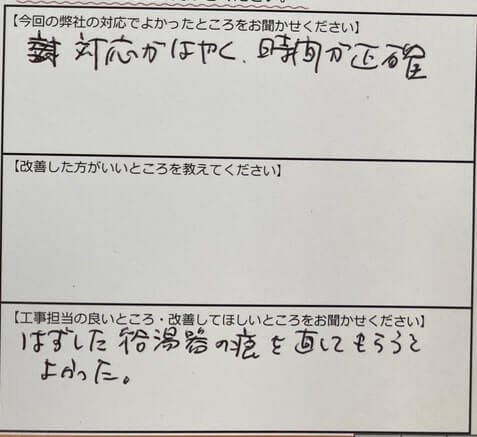 【今回の弊社の対応でよかったところをお聞かせください】
対応がはやく、時間が正確
【改善した方がいいところを教えてください】
【工事担当の良いところ・改善してほしいところをお聞かせください】
はずした給湯器の痕を直してもらうと
よかった。